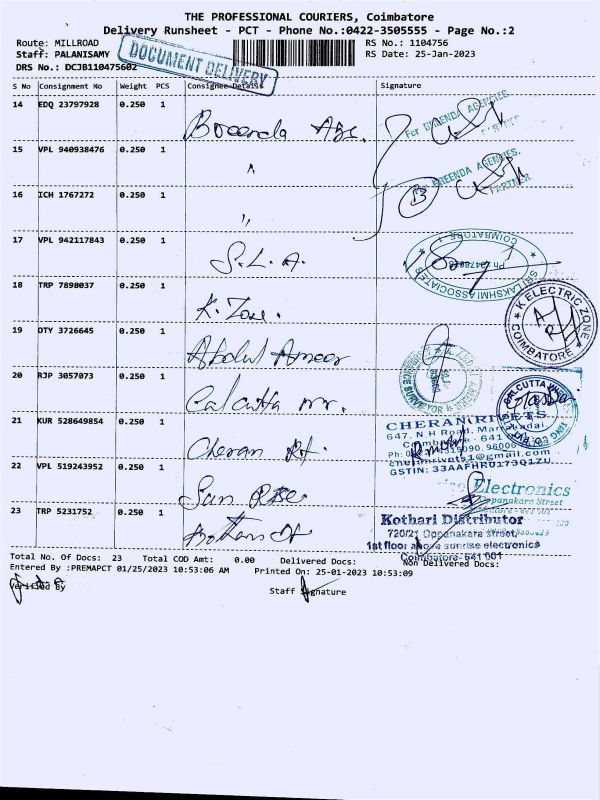 THE PROFESSIONAL COURIERS, Coimbatore
Delivery Runsheet - PCT - Phone No.:0422-3505555 - Page No.:2
Route: MILLROAD RS No.: 1104756
Staff: PALANISAMY RS Date: 25-Jan-2023
DRS No.: DCJB110475602
DOCUMENT DELIVERY
S No Consignment No Weight PCS Consignee Details Signature
14 EDQ 23797928 0.250 1
For BREENDA AGENCIES
15 VPL 940938476 0.250 1 "
BREENDA AGENCIES.
PARTNER
B
16 ICH 1767272 0.250 1 "
17 VPL 942117843 0.250 1 S.L.A.
SRI LAKSHMI ASSOCIATES
COIMBATORE
18 TRP 7898037 0.250 1 K. Zone.
K ELECTRIC ZONE
COIMBATORE
19 OTY 3726645 0.250 1 Abdul Ameer
20 RJP 3057073 0.250 1 Calcutta
CALCUTTA
21 KUR 528649854 0.250 1 Cheran Rt.
CHERAN RIVETS
647, N H Road,
Coimbatore - 641
cheranrivets1@gmail.com
GSTIN: 33AAFHR0173Q1ZU
22 VPL 519243952 0.250 1 Sun
Electronics
Oppanakara Street
23 TRP 5231752 0.250 1
Kothari Distributor
720/21 Oppanakara street,
1st floor above sunrise electronics
Coimbatore-641 001
Total No. Of Docs: 23 Total COD Amt: 0.00 Delivered Docs: Non Delivered Docs:
Entered By :PREMAPCT 01/25/2023 10:53:06 AM Printed On: 25-01-2023 10:53:09
Verified By Staff Signature